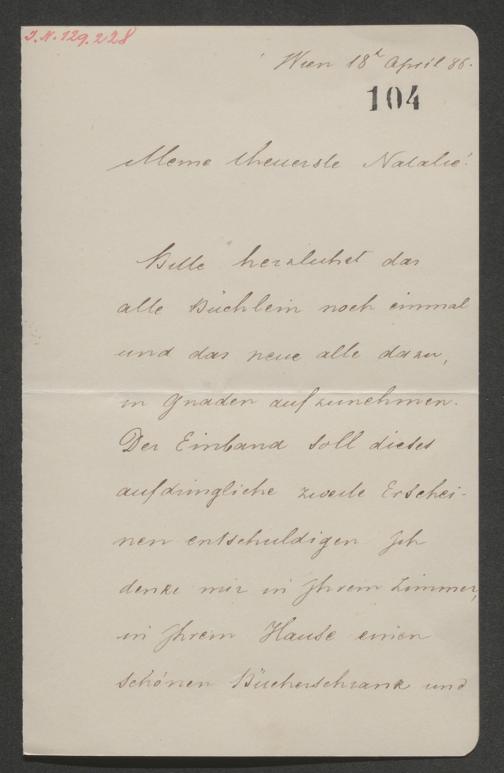 J.N. 129.228
Wien 18t April 86.
104
Meine theuerste Natalie!
Bitte herzlichst das
alte Büchlein noch einmal
und das neue alte dazu,
in Gnaden aufzunehmen.
Der Einband soll dieses
aufdringliche zweite Erschei-
nen entschuldigen Ich
denke mir in Ihrem Zimmer,
in Ihrem Hause einen
schönen Bücherschrank und